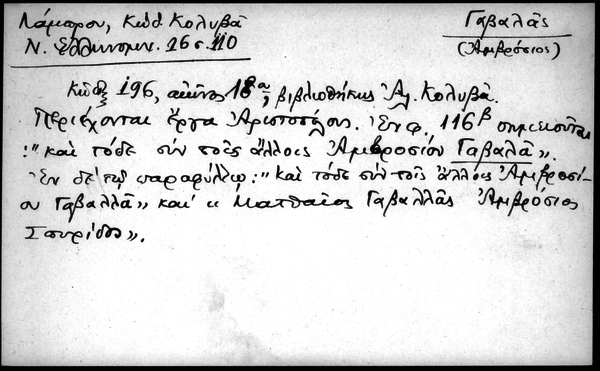 Λάμπρου, Κώδ. Κολυβᾶ
Ν. Ἑλληνομν. 16 σ. 110
Γαβαλᾶς
(Ἀμβρόσιος)
Κῶδξ 196, αἰῶνος 18ου, βιβλιοθήκης Ἀλ. Κολυβᾶ.
Περιέχονται ἔργα Ἀριστοτέλους. Ἐν φ. 116β σημειοῦται
:"καὶ τόδε σὺν τοῖς ἄλλοις Ἀμβροσίου Γαβαλᾶ".
Ἐν δὲ τῷ παραφύλλῳ: "καὶ τόδε σὺν τοῖς ἄλλοις Ἀμβροσί-
ου Γαβαλλᾶ" καὶ "Ματθαῖος Γαβαλλᾶς Ἀμβρόσιος
Σπυρίδο".